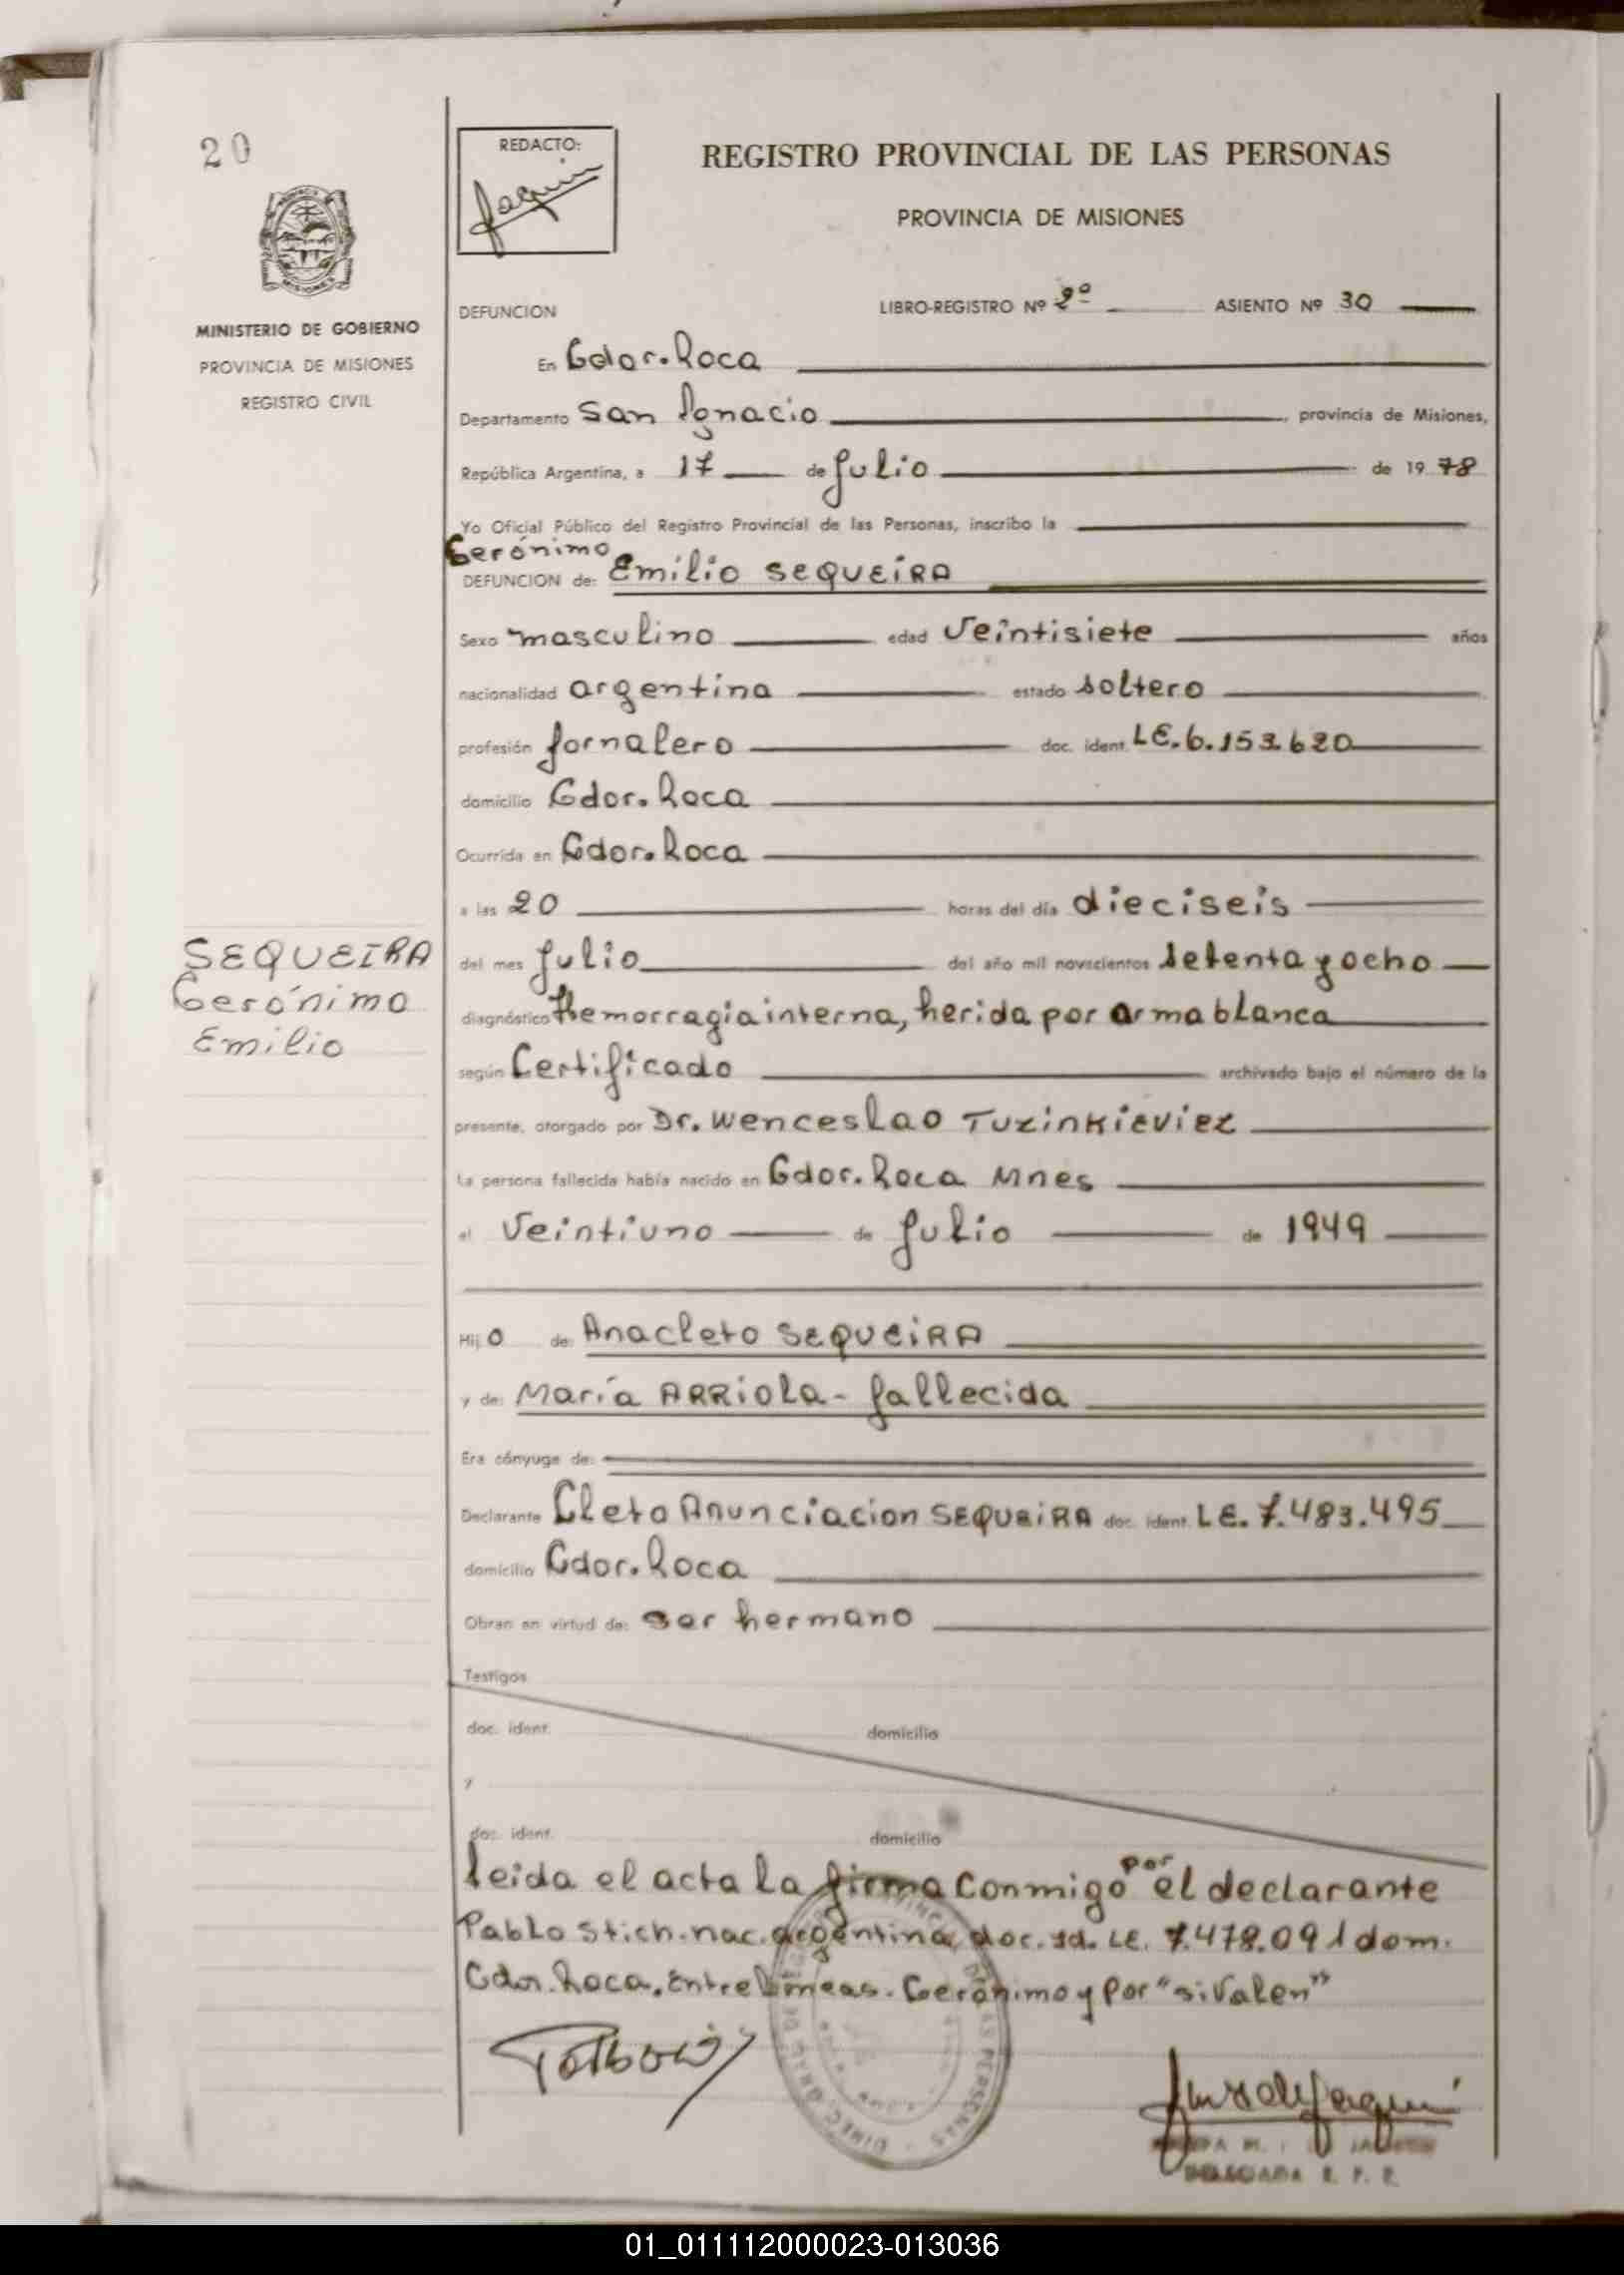 20
REDACTO:
Jaquin
REGISTRO PROVINCIAL DE LAS PERSONAS
PROVINCIA DE MISIONES
MINISTERIO DE GOBIERNO
PROVINCIA DE MISIONES
REGISTRO CIVIL
DEFUNCION LIBRO-REGISTRO Nº 2º ASIENTO Nº 30
En Gdor. Roca
Departamento San Ignacio, provincia de Misiones,
República Argentina, a 17 de Julio de 1978
Yo Oficial Público del Registro Provincial de las Personas, inscribo la
Gerónimo
DEFUNCION de: Emilio SEQUEIRA
Sexo masculino edad Veintisiete años
nacionalidad argentina estado soltero
profesión Jornalero doc. ident. LE. 6.153.620
domicilio Gdor. Roca
Ocurrida en Gdor. Roca
a las 20 horas del día dieciseis
SEQUEIRA
Gerónimo
Emilio
del mes Julio del año mil novecientos setenta y ocho
diagnóstico Hemorragia interna, herida por arma blanca
según Certificado archivado bajo el número de la
presente, otorgado por Dr. Wenceslao Tuzinkieviez
La persona fallecida había nacido en Gdor. Roca Mnes
el Veintiuno de Julio de 1949
Hijo de: Anacleto SEQUEIRA
y de: María ARRIOLA - fallecida
Era cónyuge de:
Declarante Cleto Anunciacion SEQUEIRA doc. ident. LE. 7.483.495
domicilio Gdor. Roca
Obran en virtud de: ser hermano
Testigos
doc. ident. domicilio
y
doc. ident. domicilio
Leida el acta la firma conmigo por el declarante
Pablo Stich. nac. argentina, doc. id. LE. 7.478.091 dom.
Gdor. Roca. Entre lineas. Gerónimo y por "si Valen"
DELEGADA R. P. P.
01_011112000023-013036